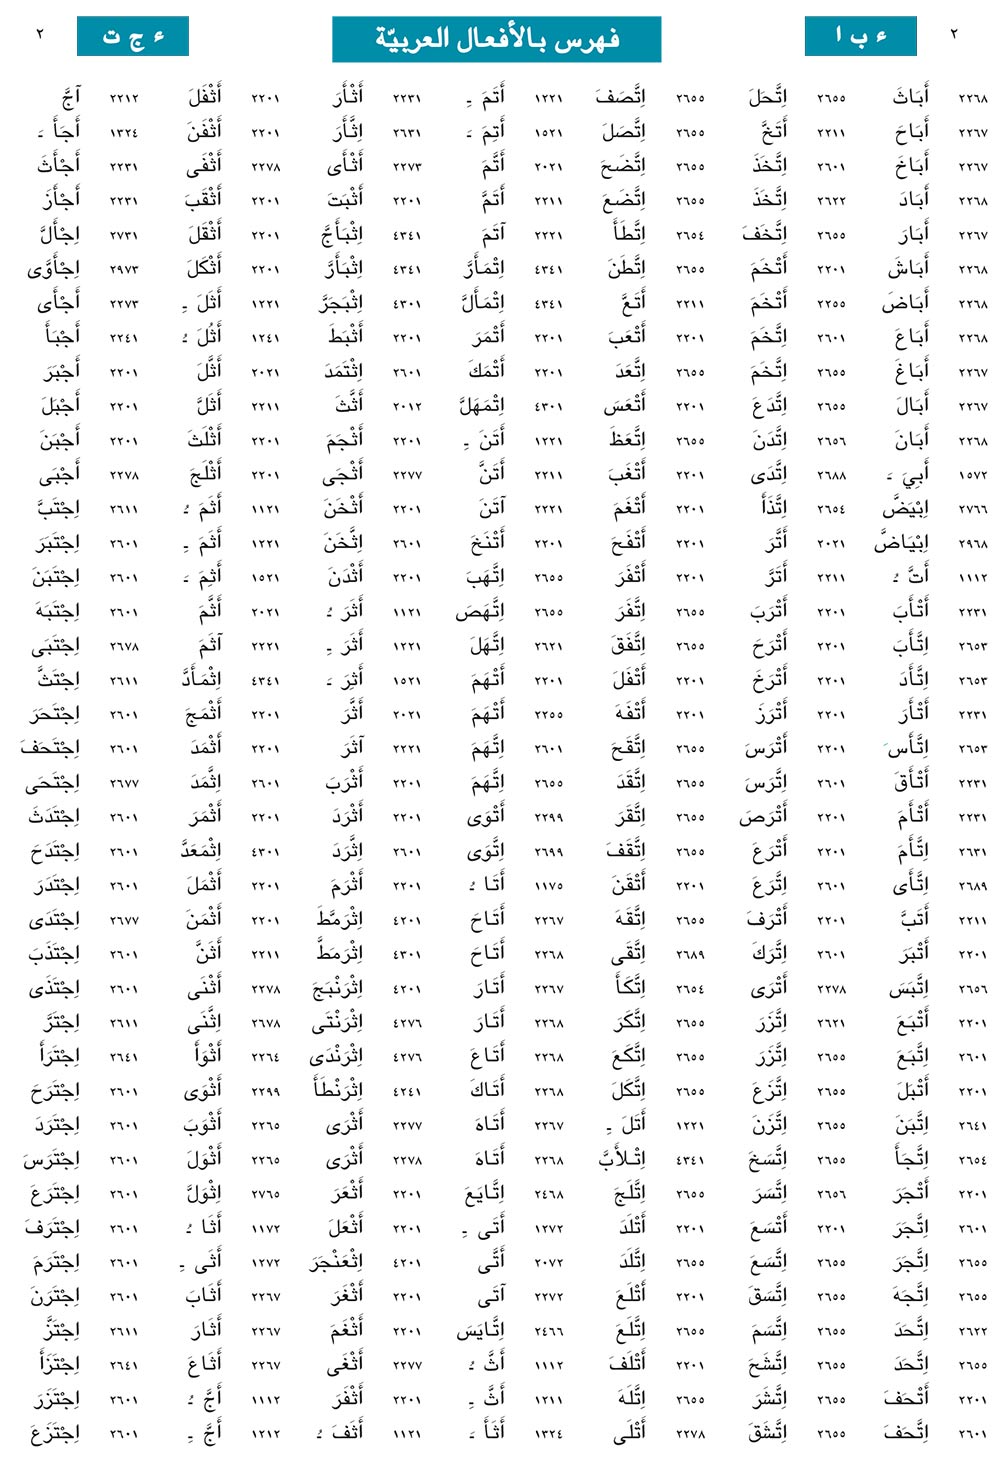 ٢ ء ب ا فهرس بالأفعال العربيّة ء ج ت ٢
٢٢٦٨ أَبَاثَ ٢٦٥٥ اِتَّحَلَ ٢٦٥٥ اِتَّصَفَ ١٢٢١ أَتَمَ ـِ ٢٢٣١ أَثْأَرَ ٢٢٠١ أَثْفَلَ ٢٢١٢ آجَّ
٢٢٦٧ أَبَاحَ ٢٢١١ أَتَخَّ ٢٦٥٥ اِتَّصَلَ ١٥٢١ أَتِمَ ـَ ٢٦٣١ اِثَّأَرَ ٢٢٠١ أَثْفَنَ ١٣٢٤ أَجَأَ ـَ
٢٢٦٧ أَبَاخَ ٢٦٠١ اِتَّخَذَ ٢٦٥٥ اِتَّضَحَ ٢٠٢١ أَتَّمَ ٢٢٧٣ أَثْأَى ٢٢٧٨ أَثْفَى ٢٢٣١ أَجْأَثَ
٢٢٦٨ أَبَادَ ٢٦٢٢ اِتَّخَذَ ٢٦٥٥ اِتَّضَعَ ٢٢١١ أَتَمَّ ٢٢٠١ أَثْبَتَ ٢٢٠١ أَثْقَبَ ٢٢٣١ أَجْأَزَ
٢٢٦٧ أَبَارَ ٢٦٥٥ اِتَّخَفَ ٢٦٥٤ اِتَّطَأَ ٢٢٢١ آتَمَ ٤٣٤١ اِثْبَأَجَّ ٢٢٠١ أَثْقَلَ ٢٧٣١ اِجْأَلَّ
٢٢٦٨ أَبَاشَ ٢٢٠١ أَتْخَمَ ٢٦٥٥ اِتَّطَنَ ٤٣٤١ اِتْمَأَرَّ ٤٣٤١ اِثْبَأَرَّ ٢٢٠١ أَثْكَلَ ٢٩٧٣ اِجْأَوَّى
٢٢٦٨ أَبَاضَ ٢٢٥٥ أَتْخَمَ ٢٢١١ أَتَعَّ ٤٣٤١ اِتْمَأَلَّ ٤٣٠١ اِثْبَجَرَّ ١٢٢١ أَثَلَ ـِ ٢٢٧٣ أَجْأَى
٢٢٦٨ أَبَاعَ ٢٦٠١ اِتَّخَمَ ٢٢٠١ أَتْعَبَ ٢٢٠١ أَتْمَرَ ٢٢٠١ أَثْبَطَ ١٢٤١ أَثُلَ ـُ ٢٢٤١ أَجْبَأَ
٢٢٦٧ أَبَاغَ ٢٦٥٥ اِتَّخَمَ ٢٦٥٥ اِتَّعَدَ ٢٢٠١ أَتْمَكَ ٢٦٠١ اِثْتَمَدَ ٢٠٢١ أَثَّلَ ٢٢٠١ أَجْبَرَ
٢٢٦٧ أَبَالَ ٢٦٥٥ اِتَّدَعَ ٢٢٠١ أَتْعَسَ ٤٣٠١ اِتْمَهَلَّ ٢٠١٢ أَثَّثَ ٢٢١١ أَثَلَّ ٢٢٠١ أَجْبَلَ
٢٢٦٨ أَبَانَ ٢٦٥٦ اِتَّدَنَ ٢٦٥٥ اِتَّعَظَ ١٢٢١ أَتَنَ ـِ ٢٢٠١ أَثْجَمَ ٢٢٠١ أَثْلَثَ ٢٢٠١ أَجْبَنَ
١٥٧٢ أَبِيَ ـَ ٢٦٨٨ اِتَّدَى ٢٢٠١ أَتْغَبَ ٢٢١١ أَتَنَّ ٢٢٧٧ أَثْجَى ٢٢٠١ أَثْلَجَ ٢٢٧٨ أَجْبَى
٢٧٦٦ اِبْيَضَّ ٢٦٥٤ اِتَّذَأَ ٢٢٠١ أَتْغَمَ ٢٢٢١ آتَنَ ٢٢٠١ أَثْخَنَ ١١٢١ أَثَمَ ـُ ٢٦١١ اِجْتَبَّ
٢٩٦٨ اِبْيَاضَّ ٢٠٢١ أَتَّرَ ٢٢٠١ أَتْفَحَ ٢٢٠١ أَتْنَخَ ٢٦٠١ اِثَّخَنَ ١٢٢١ أَثَمَ ـِ ٢٦٠١ اِجْتَبَرَ
١١١٢ أَتَّ ـُ ٢٢١١ أَتَرَّ ٢٢٠١ أَتْفَرَ ٢٦٥٥ اِتَّهَبَ ٢٢٠١ أَثْدَنَ ١٥٢١ أَثِمَ ـَ ٢٦٠١ اِجْتَبَنَ
٢٢٣١ أَتْأَبَ ٢٢٠١ أَتْرَبَ ٢٦٥٥ اِتَّفَرَ ٢٦٥٥ اِتَّهَصَ ١١٢١ أَثَرَ ـُ ٢٠٢١ أَثَّمَ ٢٦٠١ اِجْتَبَهَ
٢٦٥٣ اِتَّأَبَ ٢٢٠١ أَتْرَحَ ٢٦٥٥ اِتَّفَقَ ٢٦٢١ اِتَّهَلَ ١٢٢١ أَثَرَ ـِ ٢٢٢١ آثَمَ ٢٦٧٨ اِجْتَبَى
٢٦٥٣ اِتَّأَدَ ٢٢٠١ أَتْرَخَ ٢٢٠١ أَتْفَلَ ٢٢٠١ أَتْهَمَ ١٥٢١ أَثِرَ ـَ ٤٣٤١ اِثْمَأَدَّ ٢٦١١ اِجْتَثَّ
٢٢٣١ أَتْأَرَ ٢٢٠١ أَتْرَزَ ٢٢٠١ أَتْفَهَ ٢٢٥٥ أَتْهَمَ ٢٠٢١ أَثَّرَ ٢٢٠١ أَثْمَجَ ٢٦٠١ اِجْتَحَرَ
٢٦٥٣ اِتَّأَسَ ٢٢٠١ أَتْرَسَ ٢٦٥٥ اِتَّقَحَ ٢٦٠١ اِتَّهَمَ ٢٢٢١ آثَرَ ٢٢٠١ أَثْمَدَ ٢٦٠١ اِجْتَحَفَ
٢٢٣١ أَتْأَقَ ٢٦٠١ اِتَّرَسَ ٢٦٥٥ اِتَّقَدَ ٢٦٥٥ اِتَّهَمَ ٢٢٠١ أَثْرَبَ ٢٦٠١ اِثَّمَدَ ٢٦٧٧ اِجْتَحَى
٢٢٣١ أَتْأَمَ ٢٢٠١ أَتْرَصَ ٢٦٥٥ اِتَّقَرَ ٢٢٩٩ أَتْوَى ٢٢٠١ أَثْرَدَ ٢٢٠١ أَثْمَرَ ٢٦٠١ اِجْتَدَثَ
٢٦٣١ اِتَّأَمَ ٢٢٠١ أَتْرَعَ ٢٦٥٥ اِتَّقَفَ ٢٦٩٩ اِتَّوَى ٢٦٠١ اِثَّرَدَ ٤٣٠١ اِثْمَعَدَّ ٢٦٠١ اِجْتَدَحَ
٢٦٨٩ اِتَّأَى ٢٦٠١ اِتَّرَعَ ٢٢٠١ أَتْقَنَ ١١٧٥ أَتَا ـُ ٢٢٠١ أَثْرَمَ ٢٢٠١ أَثْمَلَ ٢٦٠١ اِجْتَدَرَ
٢٢١١ أَتَبَّ ٢٢٠١ أَتْرَفَ ٢٦٥٥ اِتَّقَهَ ٢٢٦٧ أَتَاحَ ٤٢٠١ اِثْرَمَّطَ ٢٢٠١ أَثْمَنَ ٢٦٧٧ اِجْتَدَى
٢٢٠١ أَتْبَرَ ٢٦٠١ اِتَّرَكَ ٢٦٨٩ اِتَّقَى ٢٢٦٨ أَتَاحَ ٤٣٠١ اِثْرَمَطَّ ٢٢١١ أَثَنَّ ٢٦٠١ اِجْتَذَبَ
٢٦٥٦ اِتَّبَسَ ٢٢٧٨ أَتْرَى ٢٦٥٤ اِتَّكَأَ ٢٢٦٧ أَتَارَ ٤٢٠١ اِثْرَنْبَجَ ٢٢٧٨ أَثْنَى ٢٦٠١ اِجْتَذَى
٢٢٠١ أَتْبَعَ ٢٦٢١ اِتَّزَرَ ٢٦٥٥ اِتَّكَرَ ٢٢٦٨ أَتَارَ ٤٢٧٦ اِثْرَنْتَى ٢٦٧٨ اِثَّنَى ٢٦١١ اِجْتَرَّ
٢٦٠١ اِتَّبَعَ ٢٦٥٥ اِتَّزَرَ ٢٦٥٥ اِتَّكَعَ ٢٢٦٨ أَتَاعَ ٤٢٧٦ اِثْرَنْدَى ٢٢٦٤ أَثْوَأَ ٢٦٤١ اِجْتَرَأَ
٢٢٠١ أَتْبَلَ ٢٦٥٥ اِتَّزَعَ ٢٦٥٥ اِتَّكَلَ ٢٢٦٨ أَتَاكَ ٤٢٤١ اِثْرَنْطَأَ ٢٢٩٩ أَثْوَى ٢٦٠١ اِجْتَرَحَ
٢٦٤١ اِتَّبَنَ ٢٦٥٥ اِتَّزَنَ ١٢٢١ أَتَلَ ـِ ٢٢٦٧ أَتَاهَ ٢٢٧٧ أَثْرَى ٢٢٦٥ أَثْوَبَ ٢٦٠١ اِجْتَرَدَ
٢٦٥٤ اِتَّجَأَ ٢٦٥٥ اِتَّسَخَ ٤٣٤١ اِتْلَأَبَّ ٢٢٦٨ أَتَاهَ ٢٢٧٨ أَثْرَى ٢٢٦٥ أَثْوَلَ ٢٦٠١ اِجْتَرَسَ
٢٢٠١ أَتْجَرَ ٢٦٥٦ اِتَّسَرَ ٢٦٥٥ اِتَّلَجَ ٢٤٦٨ اِتَّايَعَ ٢٢٠١ أَثْعَرَ ٢٧٦٥ اِثْوَلَّ ٢٦٠١ اِجْتَرَعَ
٢٦٠١ اِتَّجَرَ ٢٢٠١ أَتْسَعَ ٢٢٠١ أَتْلَدَ ١٢٧٢ أَتَى ـِ ٢٢٠١ أَثْعَلَ ١١٧٢ أَثَا ـُ ٢٦٠١ اِجْتَرَفَ
٢٦٥٥ اِتَّجَرَ ٢٦٥٥ اِتَّسَعَ ٢٦٥٥ اِتَّلَدَ ٢٠٧٢ أَتَّى ٤٢٠١ اِثْعَنْجَرَ ١٢٧٢ أَثَى ـِ ٢٦٠١ اِجْتَرَمَ
٢٦٥٥ اِتَّجَهَ ٢٦٥٥ اِتَّسَقَ ٢٢٠١ أَتْلَعَ ٢٢٧٢ آتَى ٢٢٠١ أَثْغَرَ ٢٢٦٧ أَثَابَ ٢٦٠١ اِجْتَرَنَ
٢٦٢٢ اِتَّحَدَ ٢٦٥٥ اِتَّسَمَ ٢٦٥٥ اِتَّلَعَ ٢٤٦٦ اِتَّايَسَ ٢٢٠١ أَثْغَمَ ٢٢٦٧ أَثَارَ ٢٦١١ اِجْتَزَّ
٢٦٥٥ اِتَّحَدَ ٢٦٥٥ اِتَّشَحَ ٢٢٠١ أَتْلَفَ ١١١٢ أَثَّ ـُ ٢٢٧٧ أَثْغَى ٢٢٦٧ أَثَاعَ ٢٦٤١ اِجْتَزَأَ
٢٢٠١ أَتْحَفَ ٢٦٥٥ اِتَّشَرَ ٢٦٥٥ اِتَّلَهَ ١٢١١ أَثَّ ـِ ٢٢٠١ أَثْفَرَ ١١١٢ أَجَّ ـُ ٢٦٠١ اِجْتَزَرَ
٢٦٠١ اِتَّحَفَ ٢٦٥٥ اِتَّشَقَ ٢٢٧٨ أَتْلَى ١٣٢٤ أَثَأَ ـَ ١١٢١ أَثَفَ ـُ ١٢١٢ أَجَّ ـِ ٢٦٠١ اِجْتَزَعَ